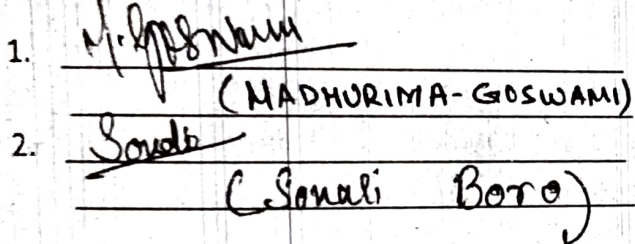 1. M. Goswami
(MADHURIMA-GOSWAMI)
2. Sonali
(Sonali Boro)